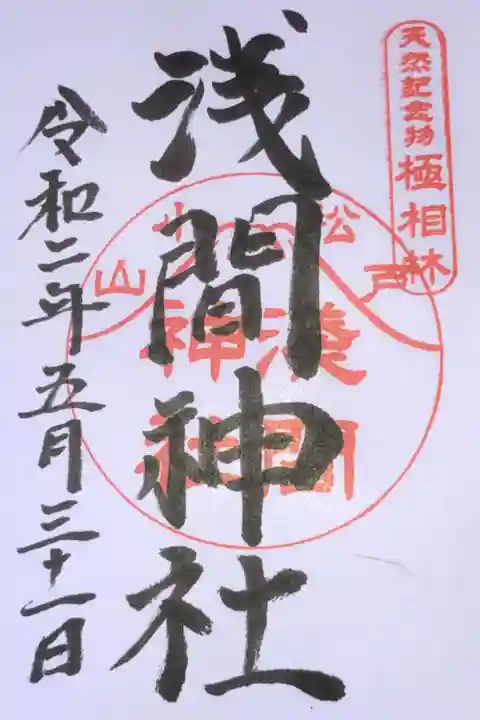 天然記念物 極相林
松戸
小山
淺間
神社
浅間神社
令和二年五月三十一日